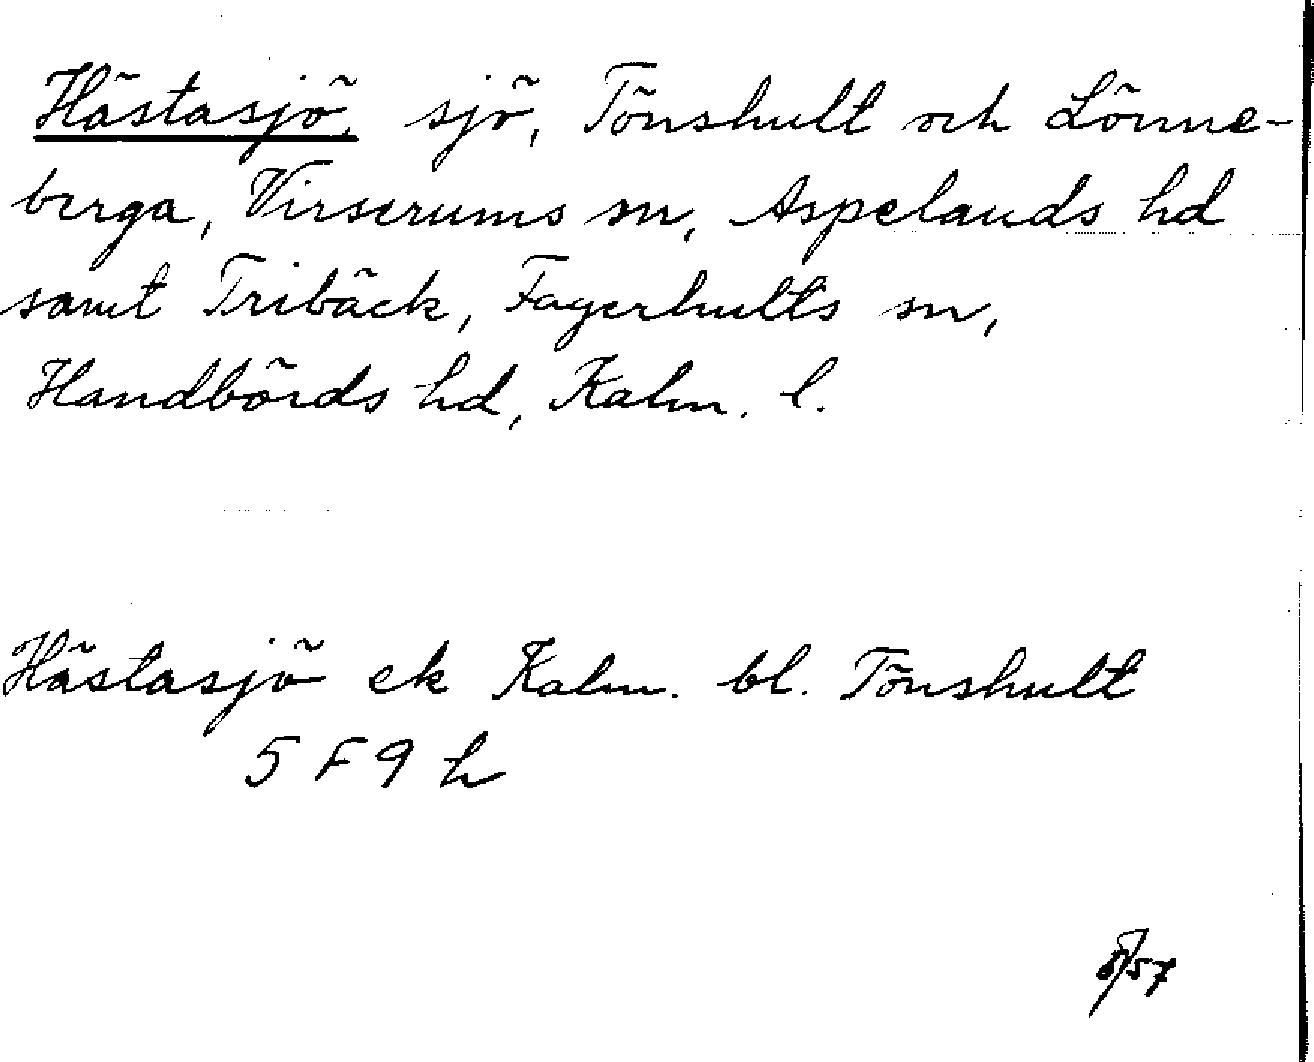 Hästasjö, sjö, Tönshult och Lönne-
berga, Virserums sn, Aspelands hd
samt Tribäck, Fagerhults sn,
Handbörds hd, Kalm. l.
Hästasjö ek Kalm. bl. Tönshult
5 F 9 h
/57